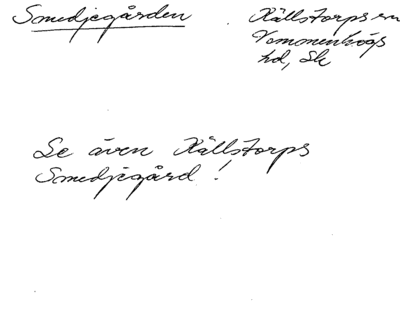 Smedjegården
Källstorps sn
Vemmenhögs
hd, Sk
Se även Källstorps
Smedjegård!